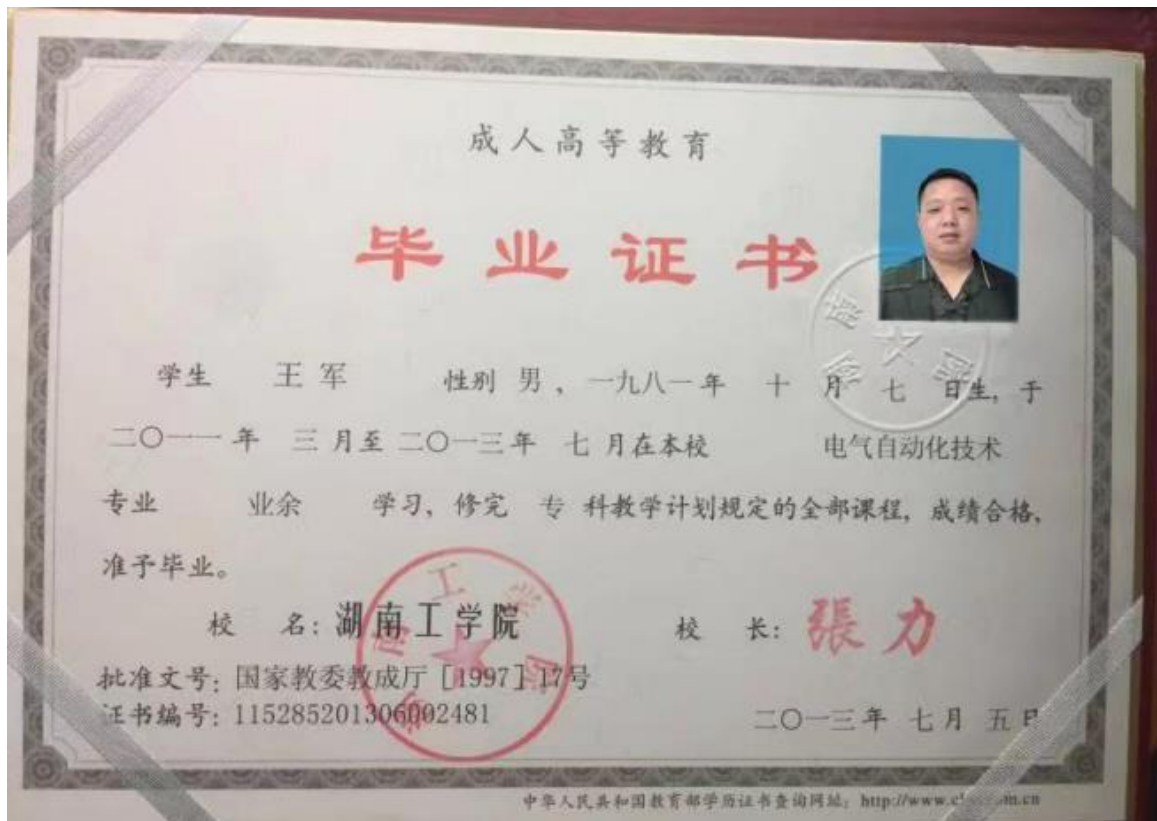 成人高等教育
毕业证书
学生 王军 性别 男，一九八一年 十 月 七 日生，于
二〇一一 年 三 月至 二〇一三年 七 月在本校 电气自动化技术
专业 业余 学习，修完 专 科教学计划规定的全部课程，成绩合格，
准予毕业。
校 名：湖南工学院 校 长：張力
批准文号：国家教委教成厅［1997］17号
证书编号：115285201306002481
二〇一三年 七月 五日
中华人民共和国教育部学历证书查询网址：http://www.
湖南工学院